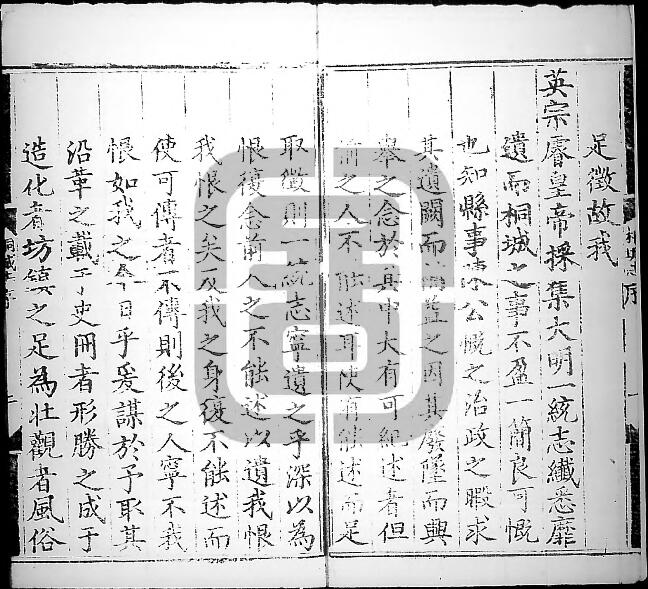 足徵故我
英宗睿皇帝採集大明一統志纖悉靡
遺而桐城之事不盈一簡良可慨
也知縣事陳公慨之治政之暇求
其遺闕而補益之因其廢墜而興
舉之念於其中大有可紀述者但
前之人不能述耳使有能述而足
取徵則一統志寧遺之乎深以為
恨復念前人之不能述以遺我恨
我恨之矣及我之身復不能述而
使可傳者不傳則後之人寧不我
恨如我之今日乎爰謀於予取其
沿革之載于史冊者形勝之成于
造化者坊鎮之足為壯觀者風俗